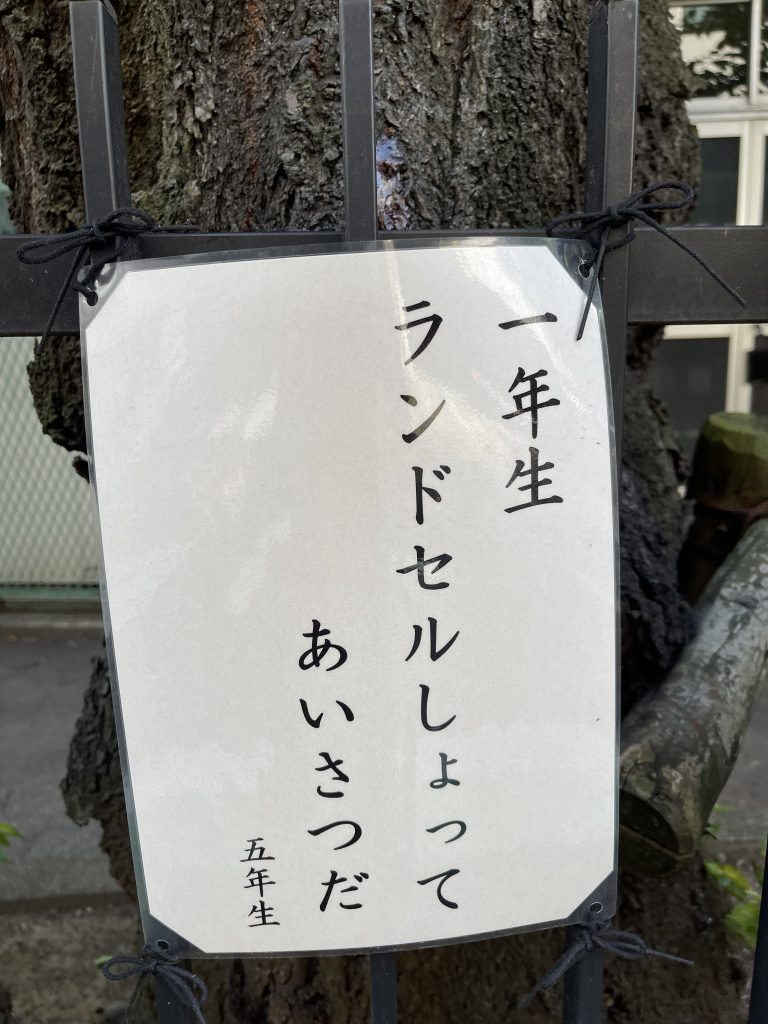 一年生
ランドセルしょって
あいさつだ
五年生